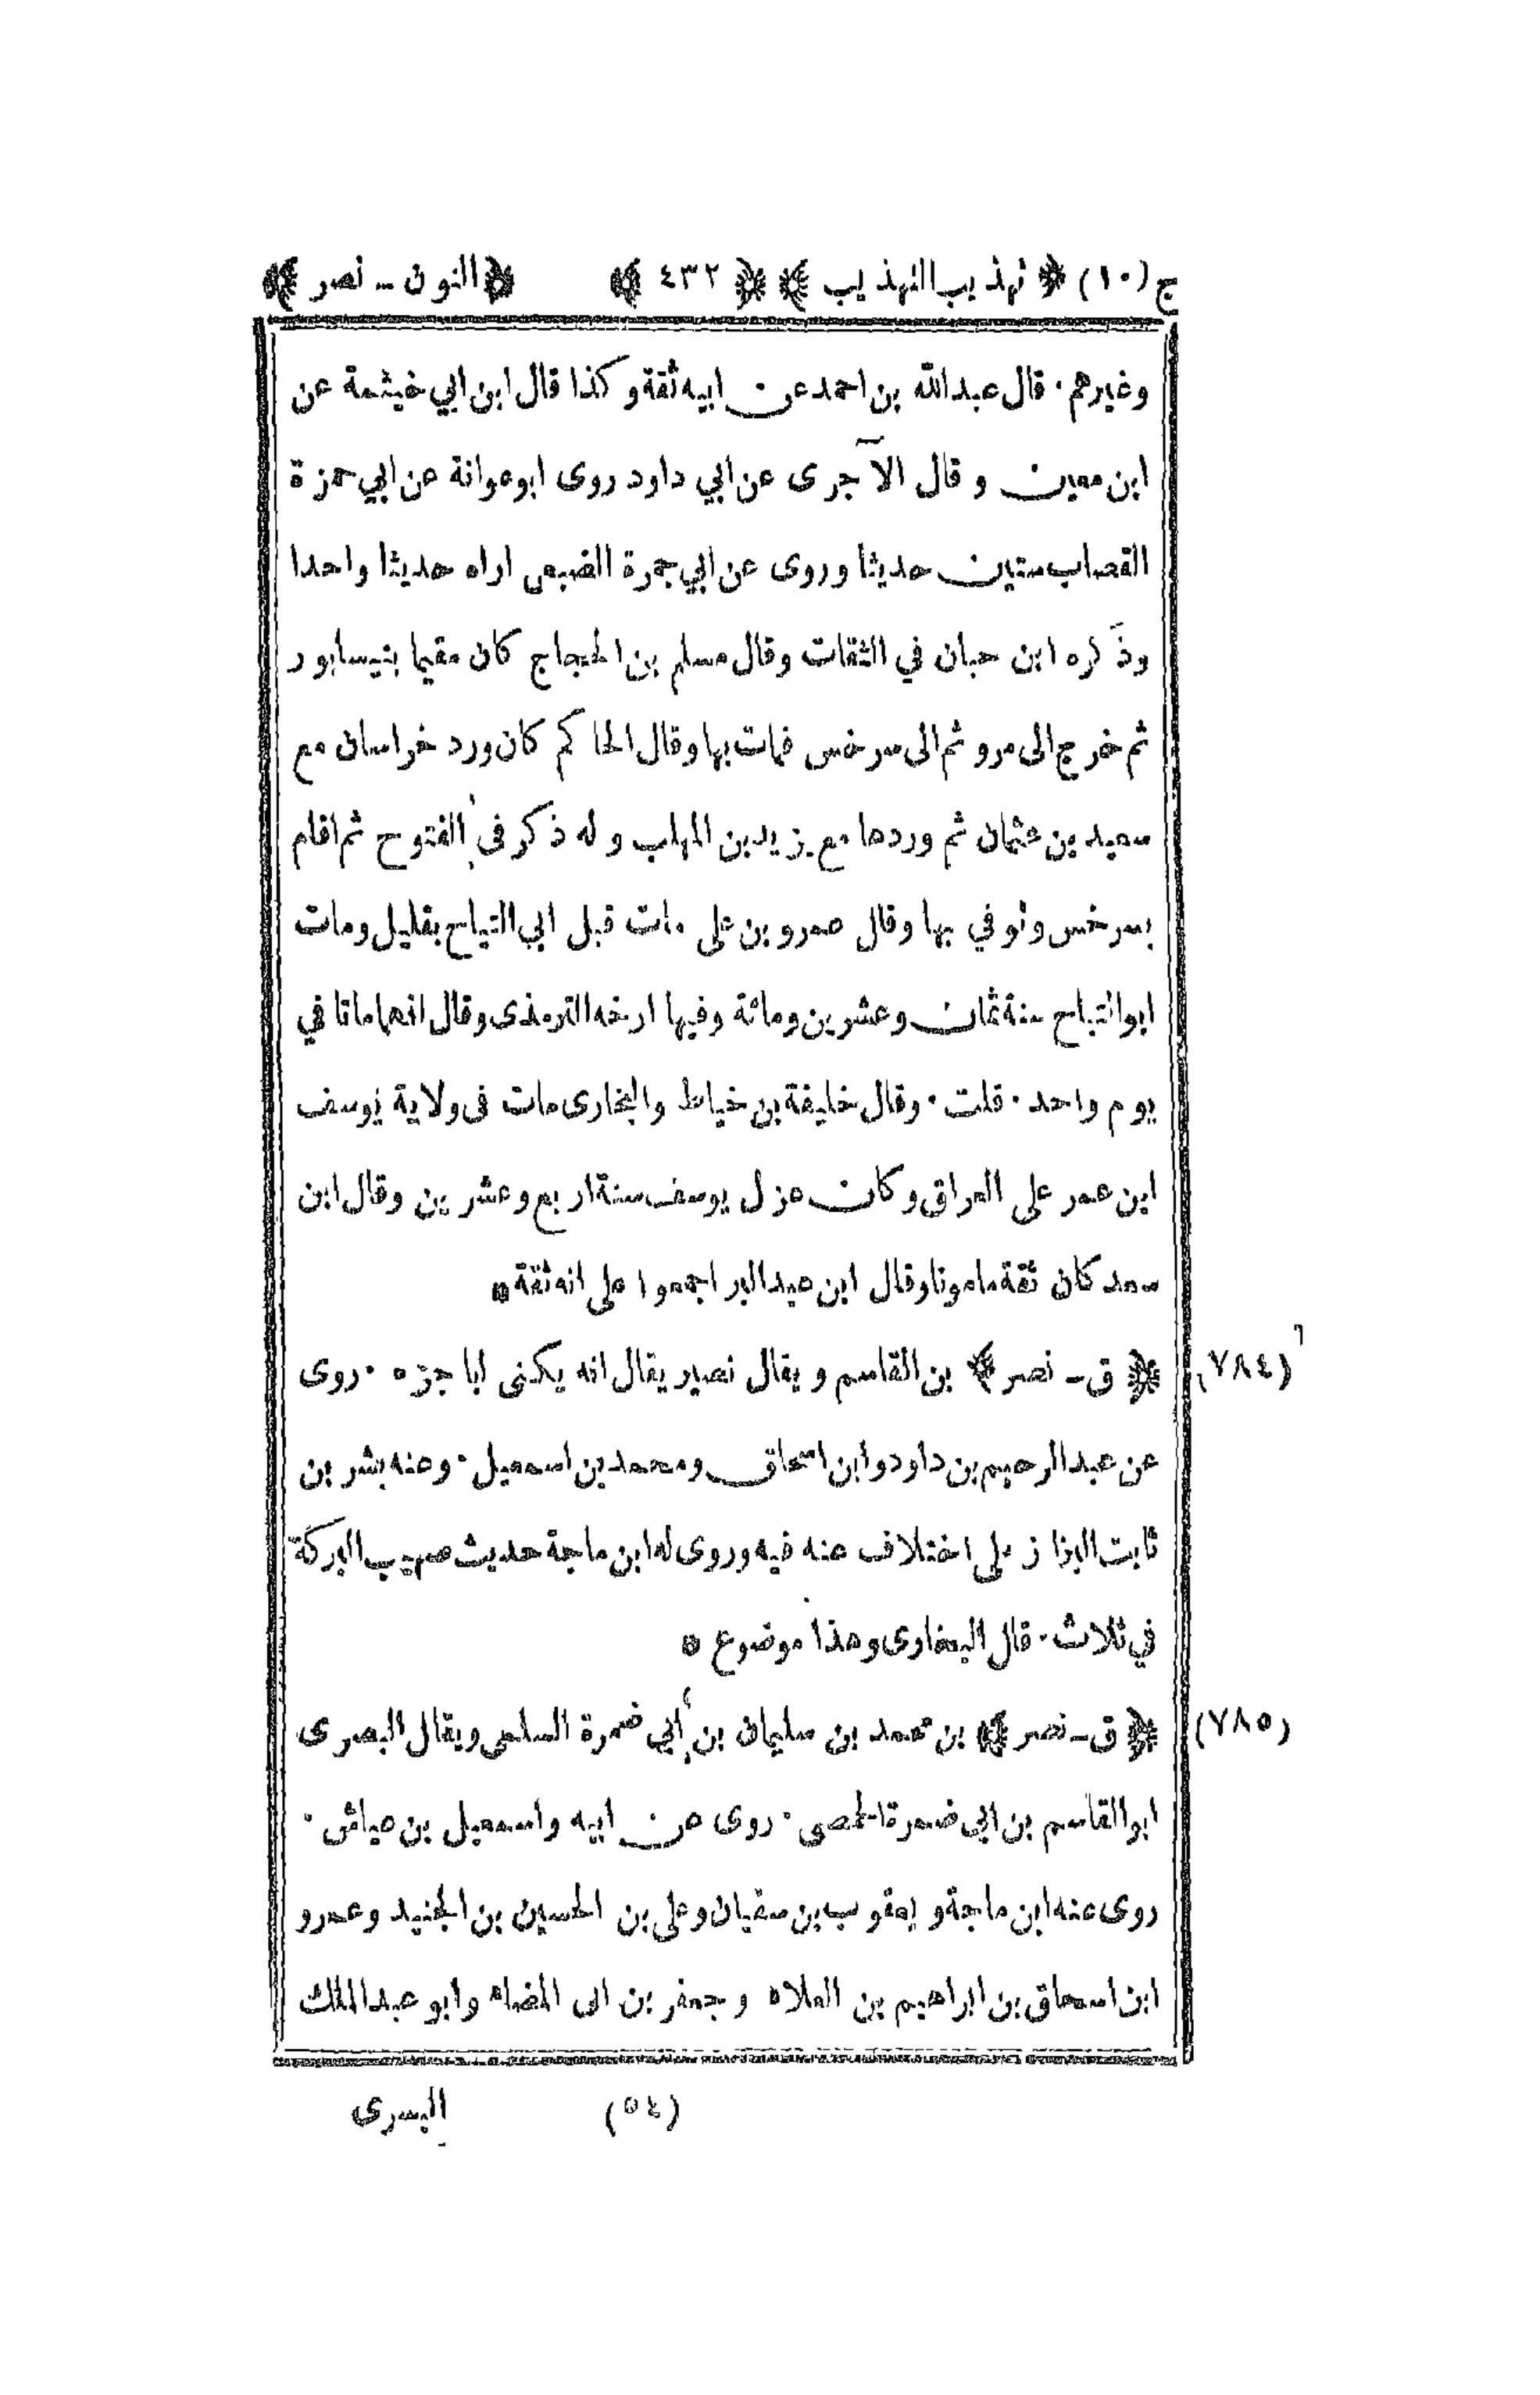 ج (١٠) ﴿ تهذيب التهذيب ﴾ ﴿ ٤٣٢ ﴾ ﴿ النون – نصر ﴾
وغيرهم · قال عبدالله بن احمد عن ابيه ثقة وكذا قال ابن ابي خيثمة عن
ابن معين وقال الآجرى عن ابي داود روى ابوعوانة عن ابي حمزة
القصاب ستين حديثا وروى عن ابي جمرة الضبعي اراه حديثا واحدا
وذكره ابن حبان في الثقات وقال مسلم بن الحجاج كان مقيما بنيسابور
ثم خرج الى مرو ثم الى سرخس فمات بها وقال الحاكم كان ورد خراسان مع
سعيد بن عثمان ثم وردها مع يزيد بن المهلب وله ذكر فى الفتوح ثم اقام
بسرخس وتوفي بها وقال عمرو بن على مات قبل ابي التياح بقليل ومات
ابوالتياح سنة ثمان وعشرين ومائة وفيها ارخه الترمذى وقال انهما ماتا في
يوم واحد · قلت · وقال خليفة بن خياط والبخارى مات فى ولاية يوسف
ابن عمر على العراق وكان عزل يوسف سنة اربع وعشرين وقال ابن
سعد كان ثقة مامونا وقال ابن عبدالبر اجمعوا على انه ثقة ٥
(٧٨٤) ﴿ ق – نصر ﴾ بن القاسم ويقال نصير يقال انه يكنى ابا جزء · روى
عن عبدالرحيم بن داود وابن اسحاق ومحمد بن اسمعيل · وعنه بشر بن
ثابت البزاز على اختلاف عنه فيه وروى له ابن ماجة حديث صهيب البركة
في ثلاث · قال البخارى وهذا موضوع ٥
(٧٨٥) ﴿ ق – نصر ﴾ بن محمد بن سليمان بن أبي ضمرة السلمى ويقال البصرى
ابوالقاسم بن ابي ضمرة الحمصى · روى عن ابيه واسمعيل بن عياش ·
روى عنه ابن ماجة ويعقوب بن سفيان وعلى بن الحسين بن الجنيد وعمرو
ابن اسحاق بن ابراهيم بن العلاء وجعفر بن ابى المضاء وابو عبدالملك
(٥٤) البسرى